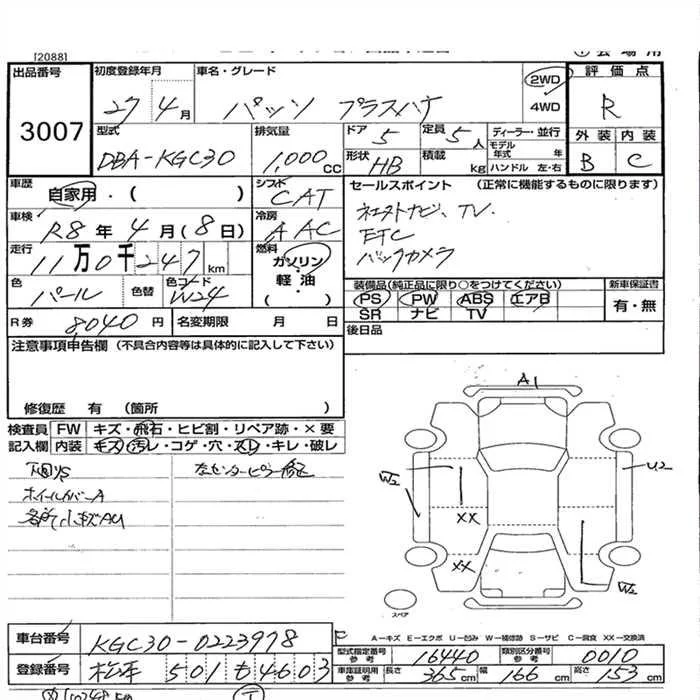 [2088]
出品番号 3007
初度登録年月 27 4月
車名・グレード パッソ プラスハナ
2WD
4WD
評価点 R
外装 B 内装 C
型式 DBA-KGC30
排気量 1,000 CC
ドア 5
定員 5人
形状 HB
積載 kg
ディーラー・並行
モデル年式 年
ハンドル 左・右
車歴 自家用・( )
シフト CAT
セールスポイント (正常に機能するものに限ります)
車検 R8年 4月(8日)
冷房 AAC
TV
ETC
バックカメラ
走行 11万0千247km
燃料 ガソリン・軽油・( )
色 パール 色替 色コード W24
装備品(純正品に限り○をつけてください)
PS PW ABS エアB
SR ナビ TV
新車保証書 有・無
R券 8040円 名変期限 月 日
後日品
注意事項申告欄 (不具合内容等は具体的に記入して下さい)
修復歴 有 (箇所 )
検査員記入欄 FW キズ・飛石・ヒビ割・リペア跡・×要
内装 キズ・汚レ・コゲ・穴・スレ・キレ・破レ
A1
U2
XX
XX
W2
スペア
車台番号 KGC30-0223978
登録番号 501 も4603
A－キズ E－エクボ U－凹み W－補修跡 S－サビ C－腐食 XX－交換済
型式指定番号 参考 16440 類別区分番号 参考 0010
車庫証明用 参考 長さ 365cm 幅 166cm 高さ 153cm